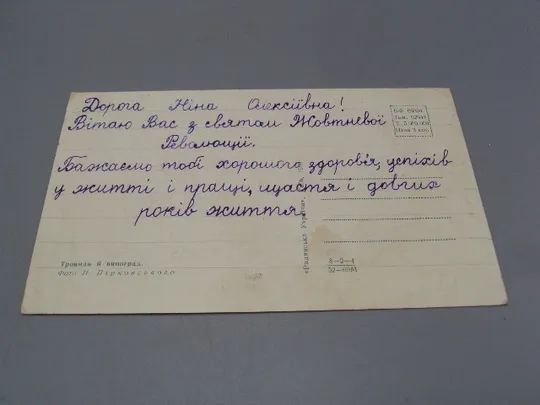 Дорога Ніна Олексіївна!
Вітаю Вас з святом Жовтневої
Революції.
Бажаємо тобі хорошого здоров'я, успіхів
у житті і праці, щастя і довгих
років життя.
Троянди й виноград.
«Радянська Україна»
8—2—4